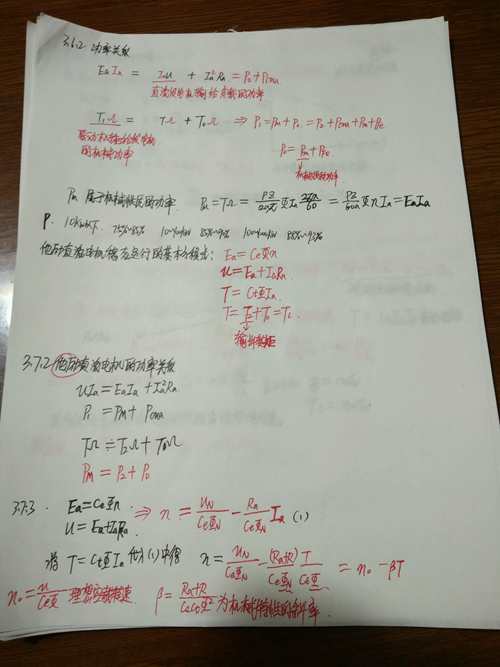 3.6.2 功率关系
EaIa = IaU + Ia²Ra = P₂ + Pcua
直流发电机输给负载的功率
T₁Ω = TΩ + T₀Ω ⇒ P₁ = Pm + P₀ = P₂ + Pcua + Pm + Pfe
原动机输给发电机的机械功率
P₀ = Pm + Pfe
机械损耗功率
Pm 属于机械性质的功率 Pm = TΩ = PZ/2πa ΦIa 2πn/60 = PZ/60a ΦnIa = EaIa
P. 10kW以下 75%~85% 10~100kW 85%~90% 100~1000kW 88%~93%
他励直流电动机稳态运行的基本方程式: Ea = CeΦn
U = Ea + IaRa
T = CtΦIa
T = T₂ + T₀ = TL
输出转矩
3.7.2 他励直流电机的功率关系
UIa = EaIa + Ia²Ra
P₁ = PM + Pcua
TΩ = T₂Ω + T₀Ω
PM = P₂ + P₀
3.7.3. Ea = CeΦn
U = Ea + IaRa
⇒ n = UN/CeΦN - Ra/CeΦN Ia (1)
将 T = CtΦIa 代入(1)中得 n = UN/CeΦN - (Ra+R)/CeΦN T/CtΦ = n₀ - βT
n₀ = U/CeΦ 理想空载转速 β = Ra+R/CeCtΦ² 为机械特性的斜率